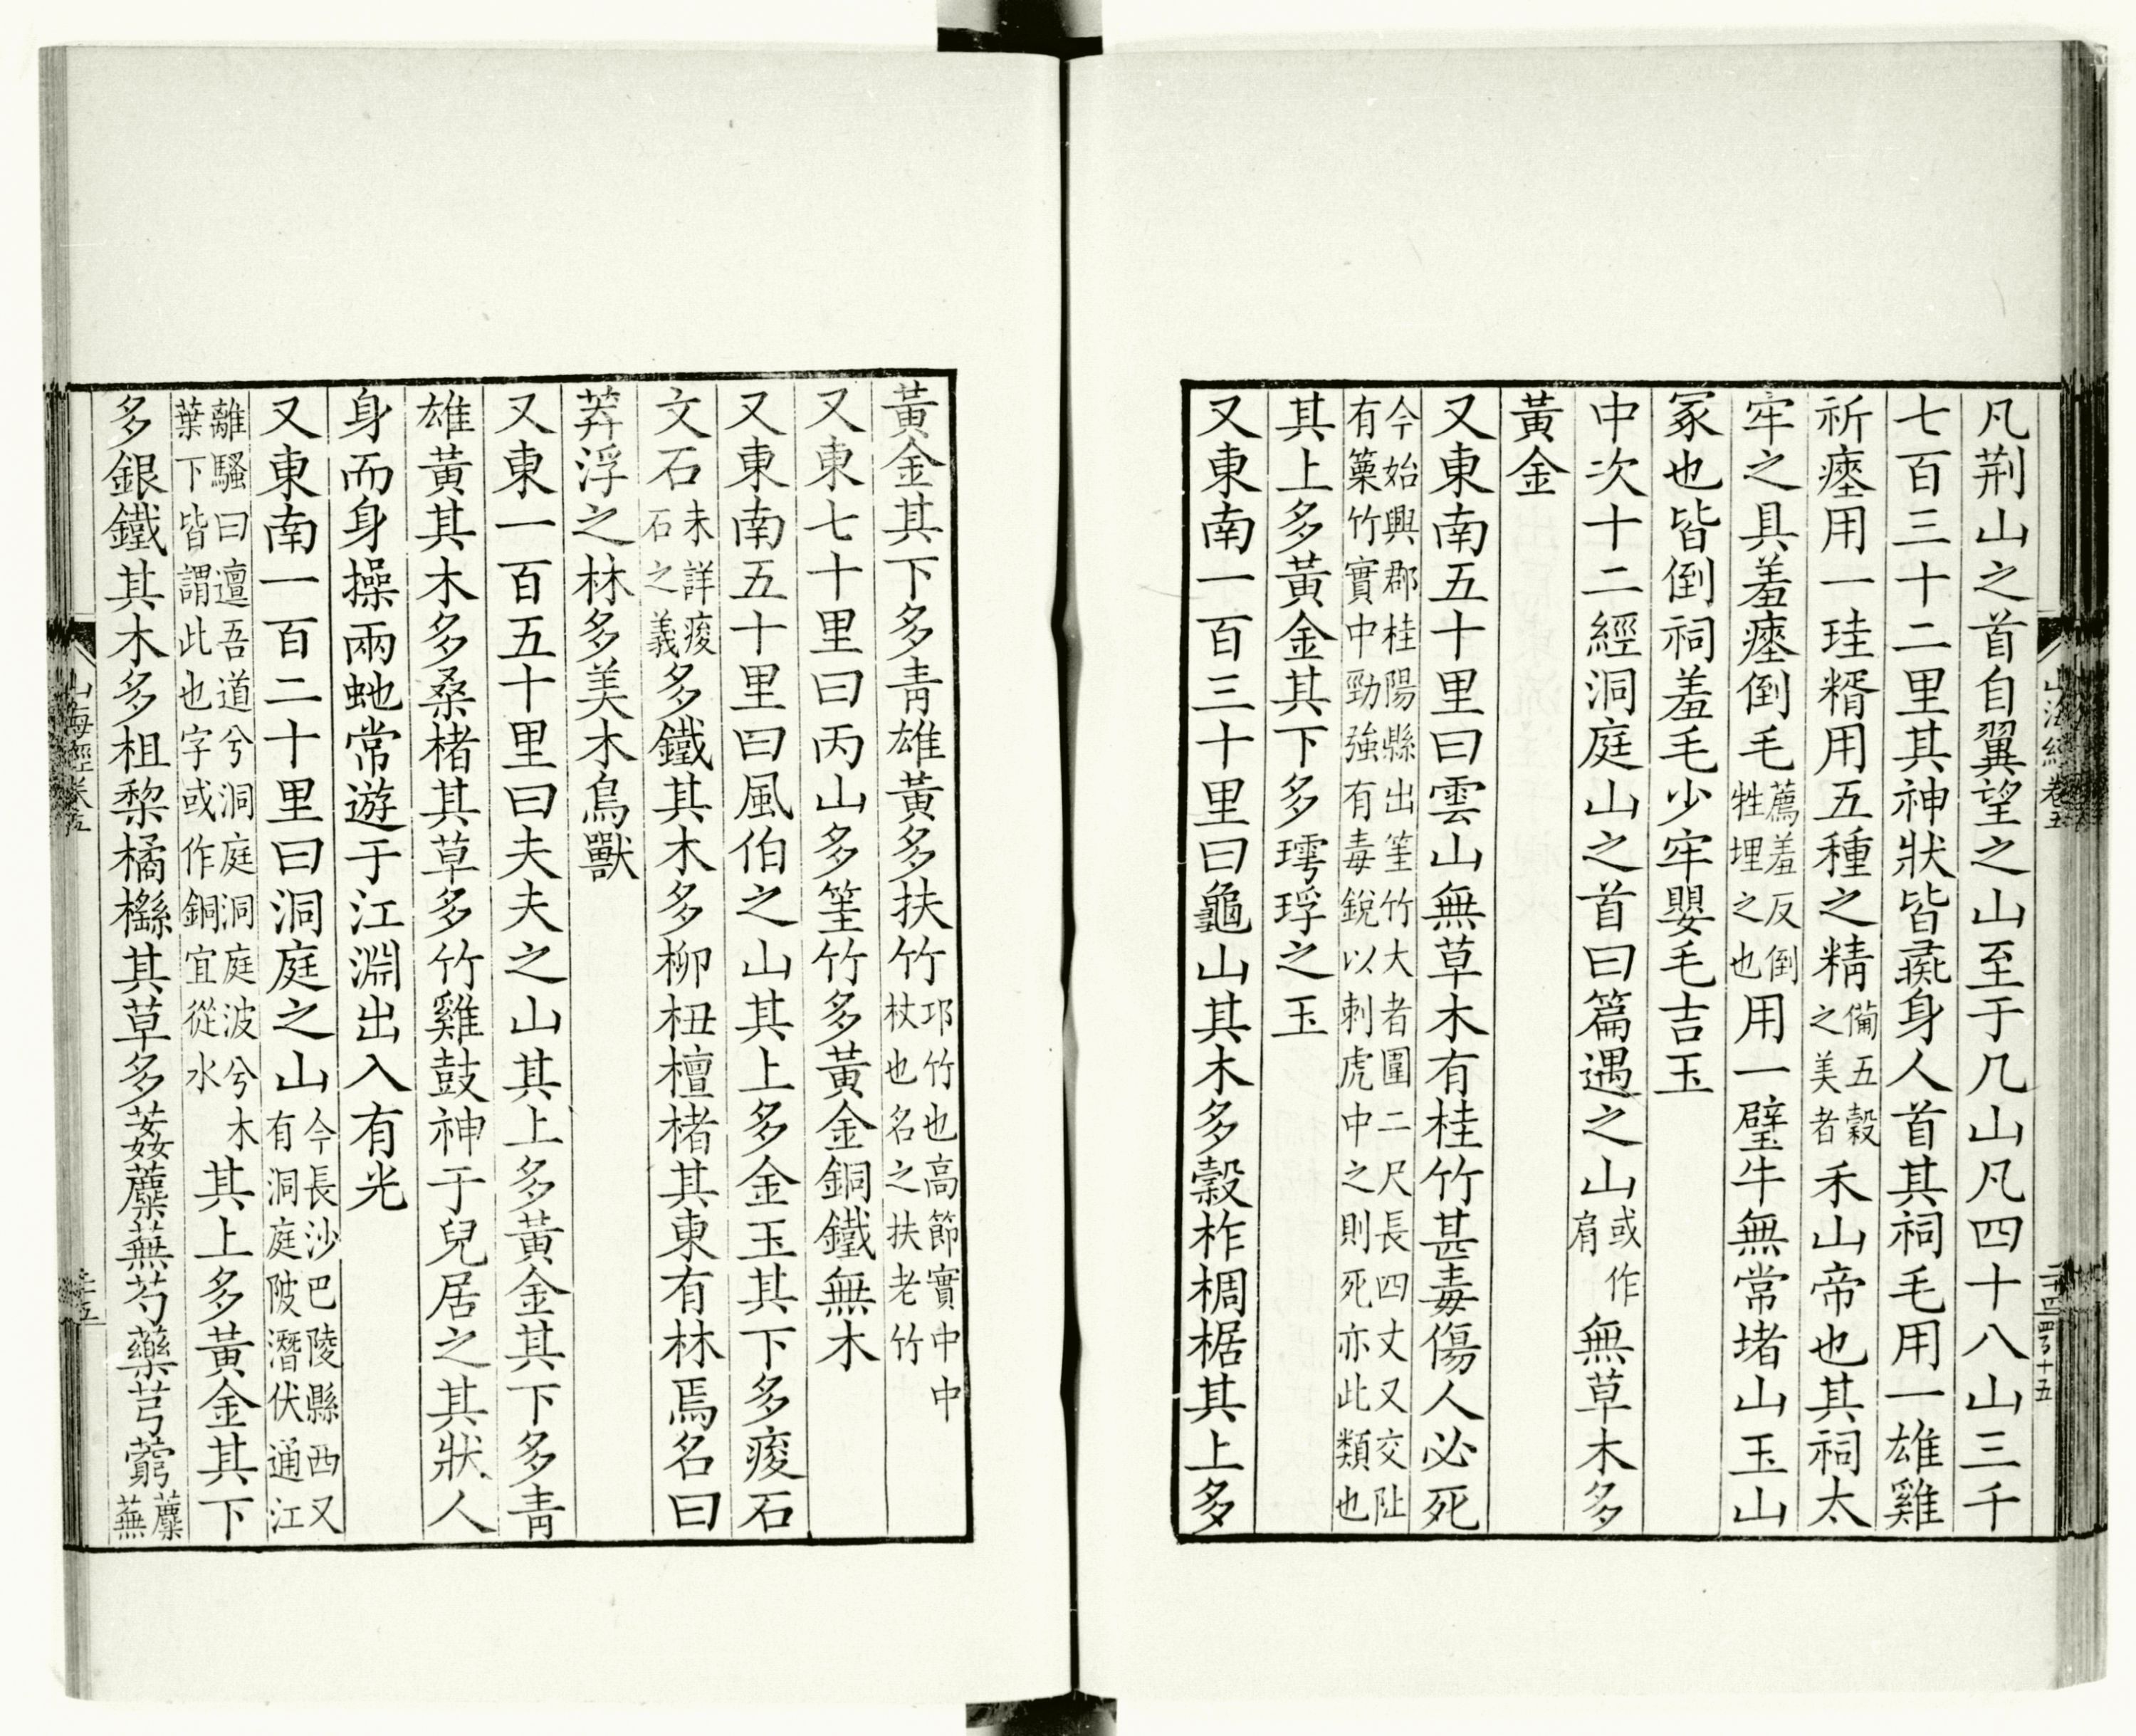 凡荆山之首自翼望之山至于几山凡四十八山三千
七百三十二里其神狀皆彘身人首其祠毛用一雄雞
祈瘞用一珪糈用五種之精備五穀之美者禾山帝也其祠太
牢之具羞瘞倒毛薦羞反倒牲埋之也用一璧牛無常堵山玉山
冢也皆倒祠羞毛少牢嬰毛吉玉
中次十二經洞庭山之首曰篇遇之山或作肩無草木多
黃金
又東南五十里曰雲山無草木有桂竹甚毒傷人必死
今始興郡桂陽縣出筀竹大者圍二尺長四丈又交阯
有篥竹實中勁強有毒銳以刺虎中之則死亦此類也
其上多黃金其下多㻬琈之玉
又東南一百三十里曰龜山其木多榖柞椆椐其上多
黃金其下多青雄黃多扶竹邛竹也高節實中中杖也名之扶老竹
又東七十里曰丙山多筀竹多黃金銅鐵無木
又東南五十里曰風伯之山其上多金玉其下多痠石
文石未詳痠石之義多鐵其木多柳杻檀楮其東有林焉名曰
莽浮之林多美木鳥獸
又東一百五十里曰夫夫之山其上多黃金其下多青
雄黃其木多桑楮其草多竹雞鼓神于兒居之其狀人
身而身操兩虵常遊于江淵出入有光
又東南一百二十里曰洞庭之山今長沙巴陵縣西又有洞庭陂潛伏通江
離騷曰邅吾道兮洞庭洞庭波兮木葉下皆謂此也字或作銅宜從水其上多黃金其下
多銀鐵其木多柤棃橘櫾其草多葌蘪蕪芍藥芎藭蘪蕪
山海經卷五
二十四
四百十五
山海經卷五